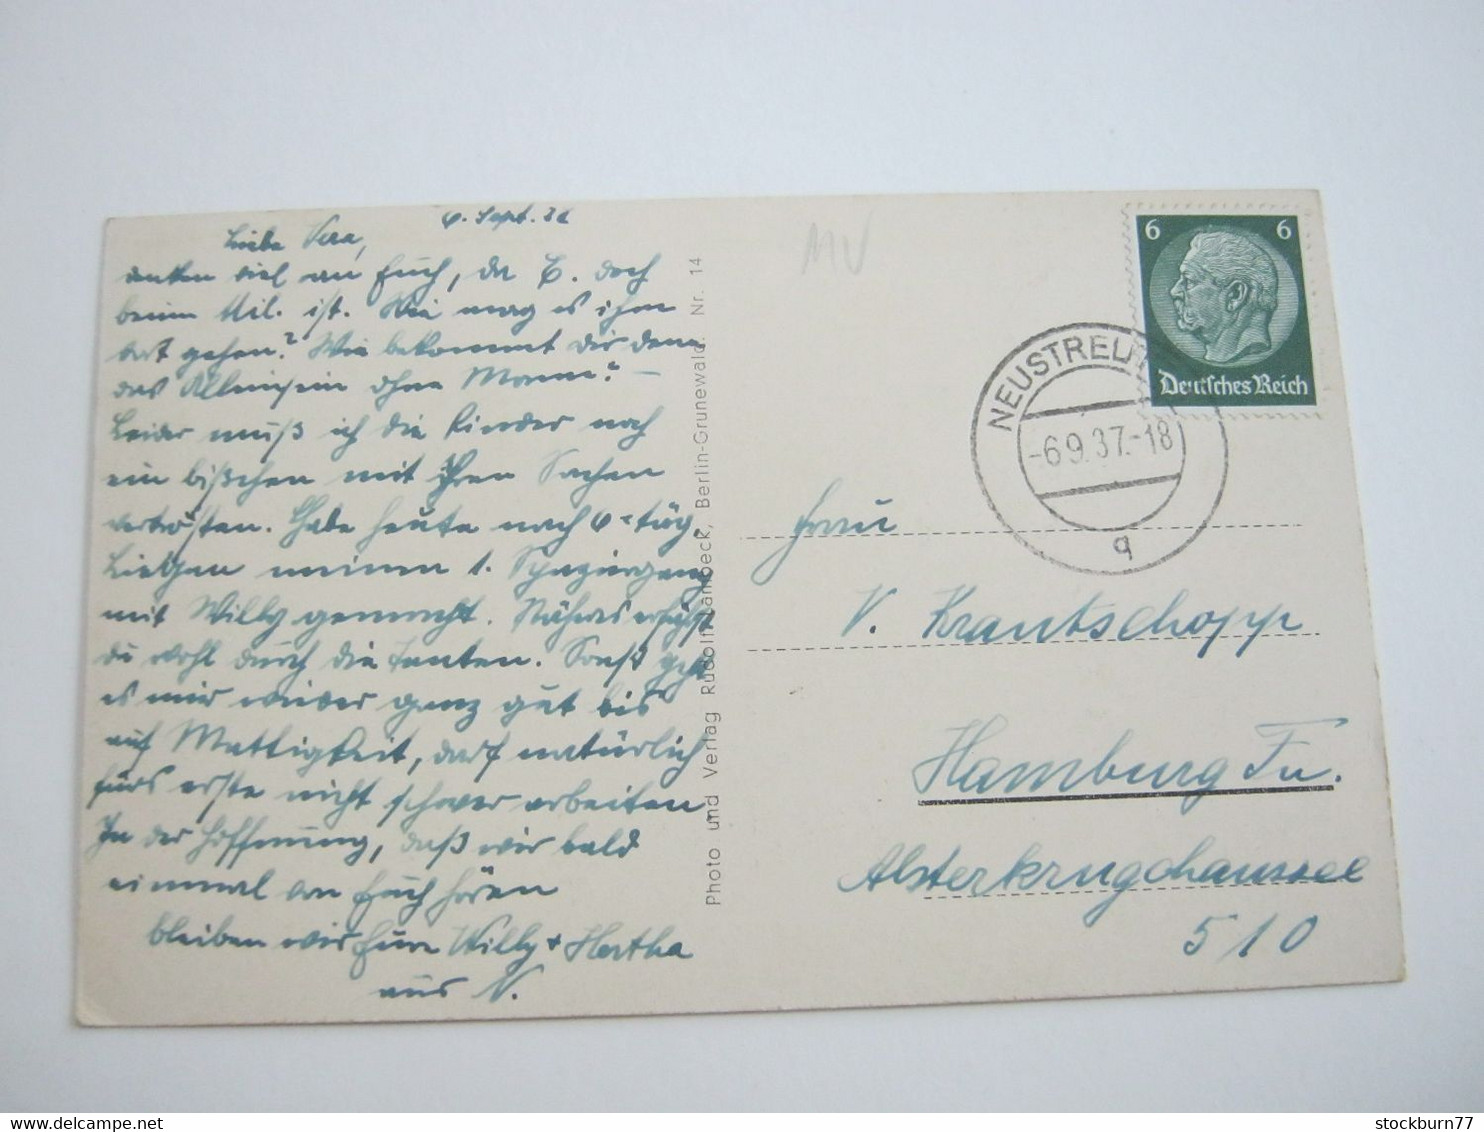 6. Sept. 36
Liebe Vera,
denken viel an Euch, da E. doch
beim Mil. ist. Wie mag es ihm
dort gehen? Wie bekommt dir denn
das Alleinsein ohne Mann? –
Leider muß ich die Kinder noch
ein bißchen mit Ihren Sachen
vertrösten. Habe heute nach 6-täg.
Liegen meinen 1. Spaziergang
mit Willy gemacht. Näheres erfährst
du wohl durch die Tanten. Sonst geht
es mir wieder ganz gut bis
auf Mattigkeit, darf natürlich
fürs erste nicht schwer arbeiten
In der Hoffnung, daß wir bald
einmal von Euch hören
bleiben wir Eure Willy + Hertha
aus N.
Photo und Verlag Rudolf Lambeck, Berlin-Grunewald. Nr. 14
MV
6 6
Deutsches Reich
NEUSTREL
-6.9.37.-18
q
Frau
V. Krautschopp
Hamburg Fu.
Alsterkrugchaussee
510
stockburn77